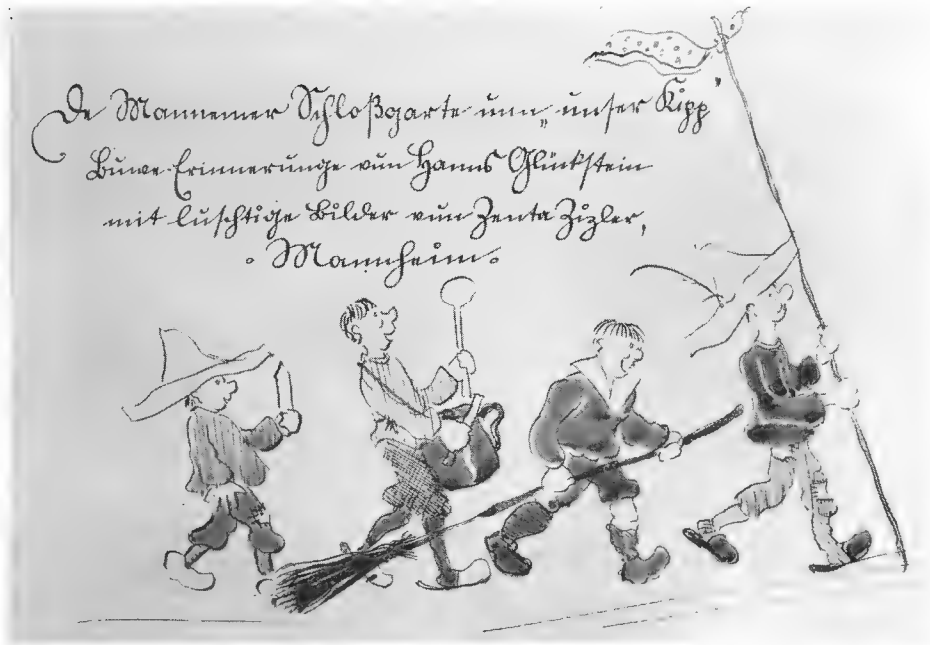 De Mannemer Schloßgarte unn „unser Kipp“
Buwe-Erinnerunge vun Hanns Glückstein
mit luschtige Bilder vun Zenta Zizler,
Mannheim.